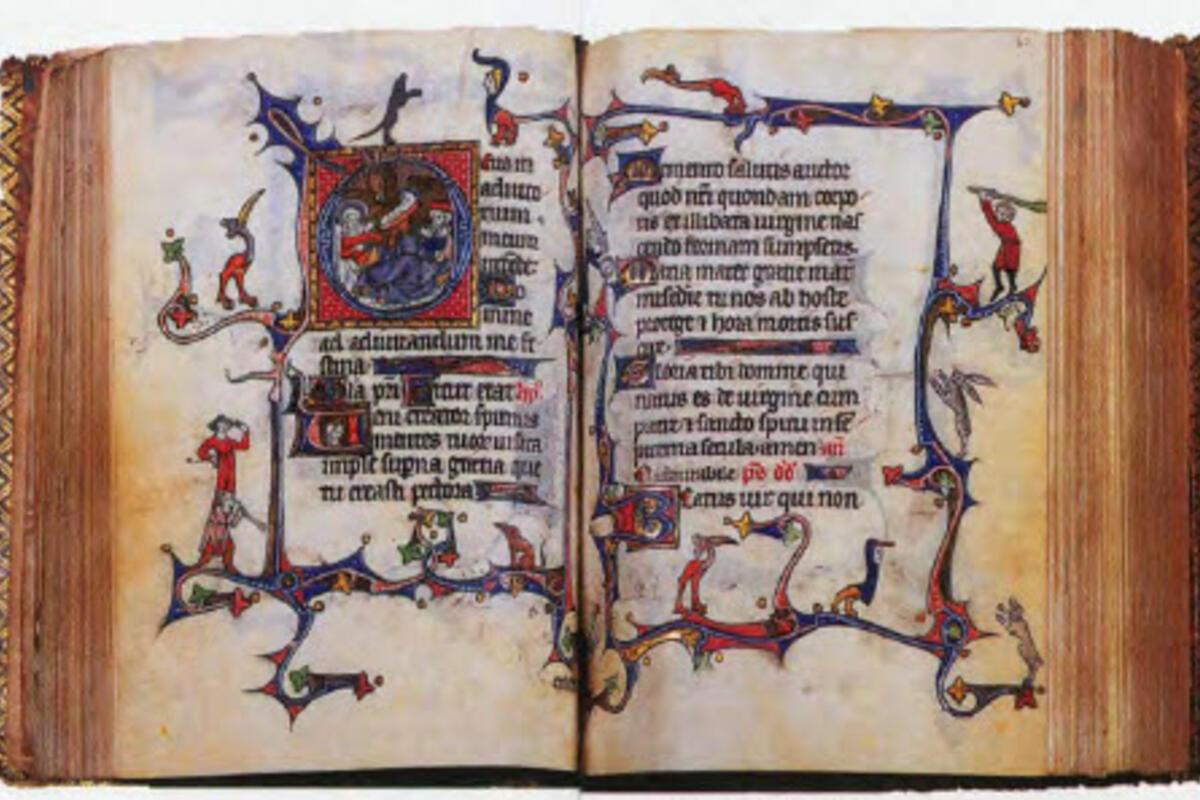 eus in
adiuto
rium
meum
intede
Do
mine
ad adiuuandum me fe
stina
Gloia pri Sicut erat hỹ
Veni creator spiritus
mentes tuorum uisita
imple supna gratia que
tu creasti pectora
Memento salutis auctor
quod nrĩ quondam corpo
ris ex illibata uirgine nas
cendo formam sumpseris
Maria mater gratie mat
miscdie tu nos ab hoste
protege & hora mortis sus
cipe
Gloria tibi domine qui
natus es de uirgine cum
patre & sancto spiritu in se
piterna secula amen an̄
ps̄ dd̄
Beatus uir qui non